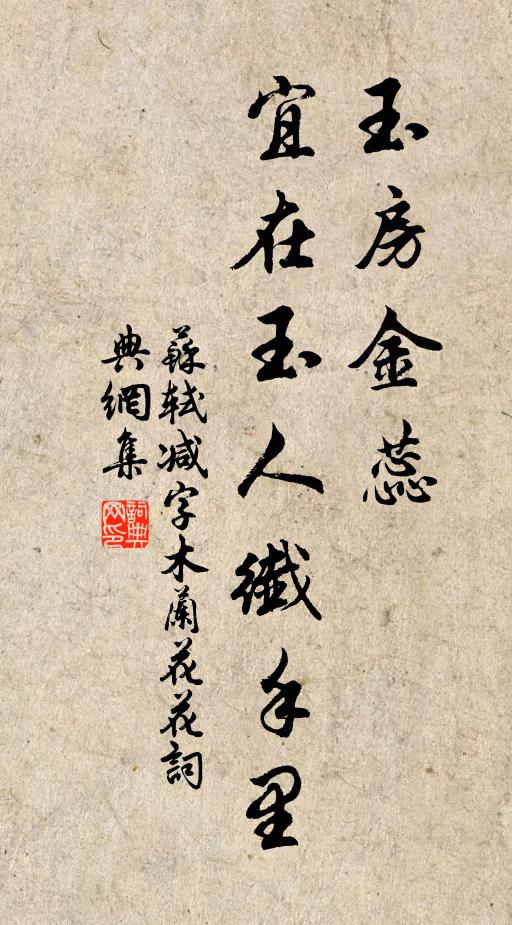 玉房金蕊
宜在玉人纖手里
蘇軾减字木蘭花花詞
典網集
詞典網印